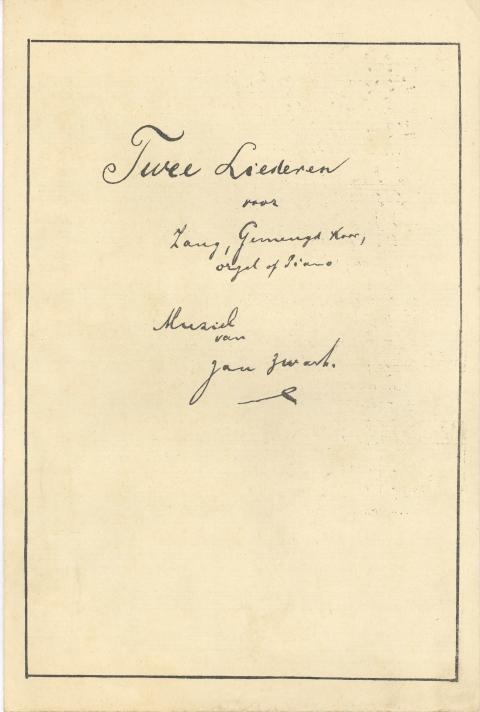 Twee Liederen
voor
Zang, Gemengd Koor,
orgel of Piano
Muziek
van
Jan Zwart.